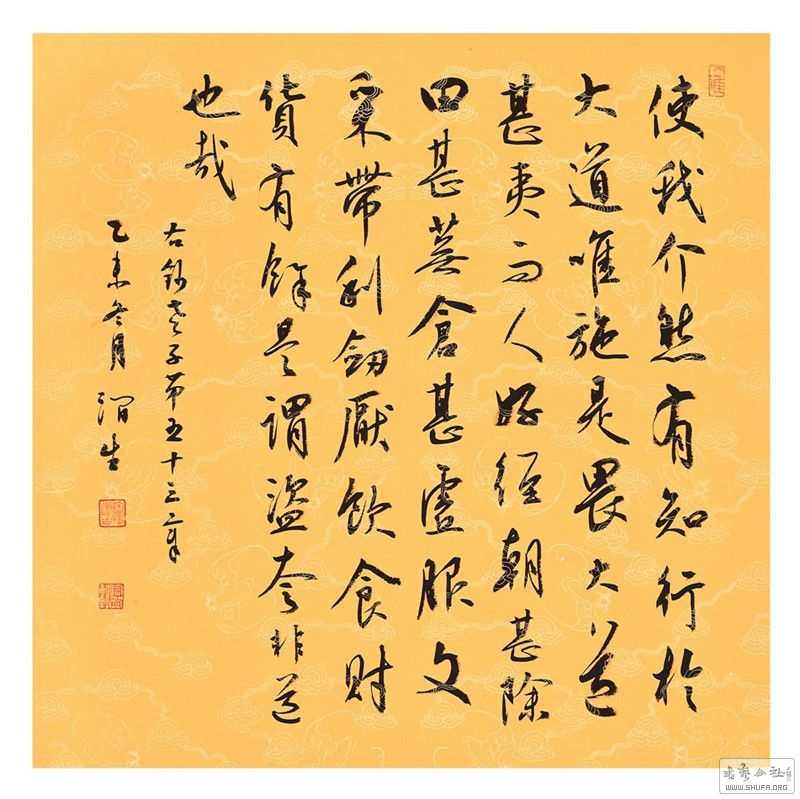 使我介然有知行於
大道唯施是畏大道
甚夷而人好徑朝甚除
田甚蕪倉甚虛服文
采帶利劍厭飲食財
貨有餘是謂盜夸非道
也哉
右 老子第五十三章
乙未冬月 渭生
書藝公社
WWW.SHUFA.ORG